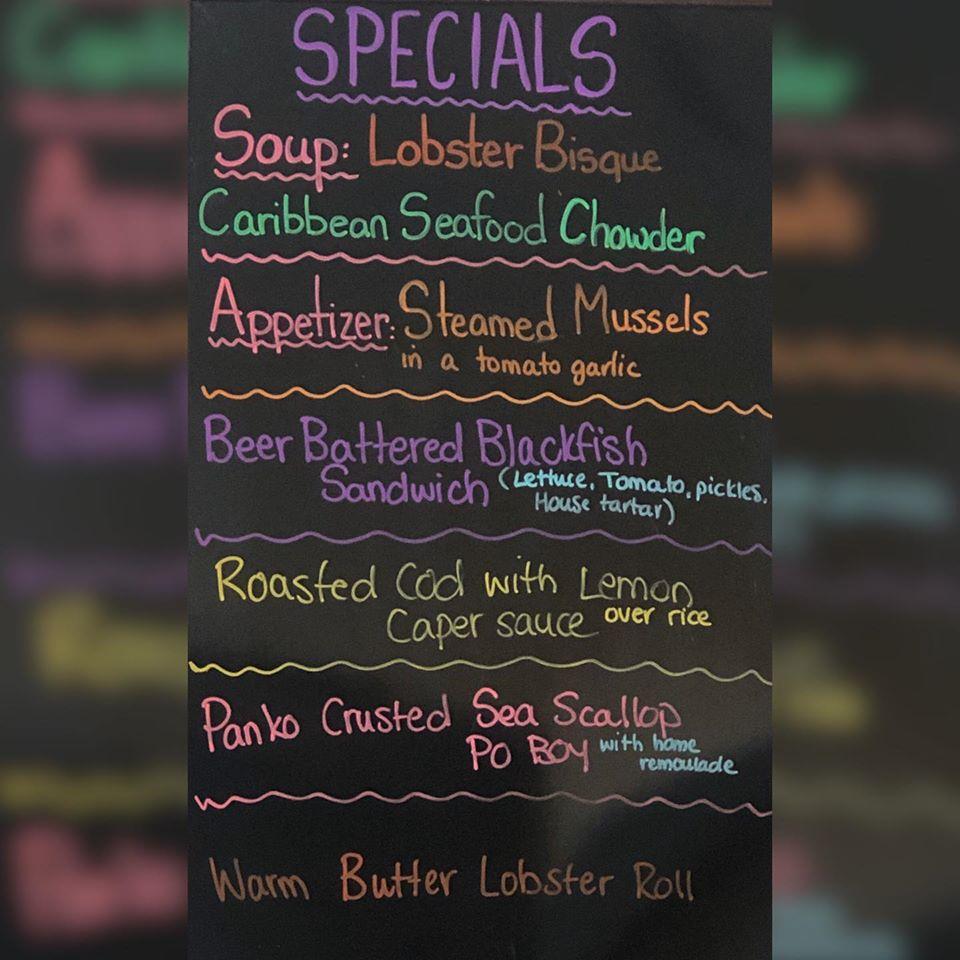 SPECIALS
Soup: Lobster Bisque
Caribbean Seafood Chowder
Appetizer: Steamed Mussels
in a tomato garlic
Beer Battered Blackfish
Sandwich (Lettuce, Tomato, pickles,
House tartar)
Roasted Cod with Lemon
Caper sauce over rice
Panko Crusted Sea Scallop
Po Boy with home
remoulade
Warm Butter Lobster Roll